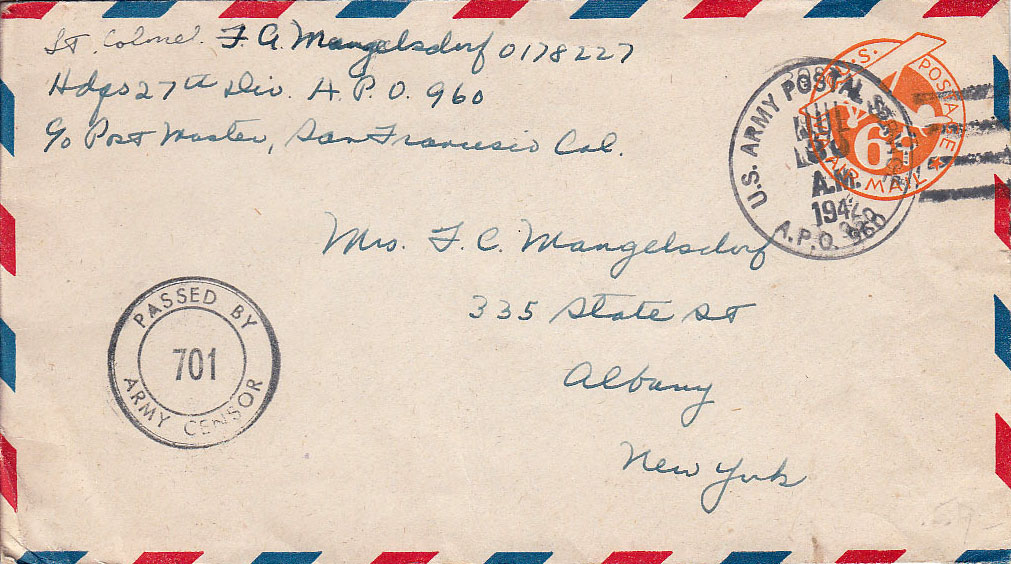 Lt. Colonel. F. A. Mangelsdorf 0178227
Hdqs 27th Div. A. P. O. 960
c/o Post Master, San Francisco Cal.
U.S. POSTAGE
6¢
AIR MAIL
U.S. ARMY POSTAL SERVICE
30
A.M.
194
A.P.O. 960
Mrs. F. C. Mangelsdorf
335 State St
Albany
New York
PASSED BY
701
ARMY CENSOR